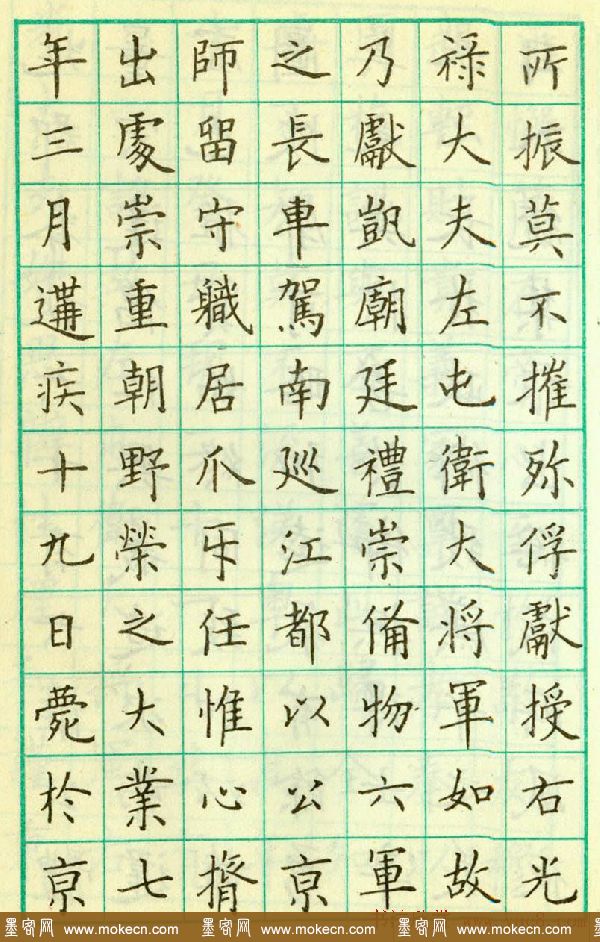 所振莫不摧殄俘獻授右光
禄大夫左屯衛大将軍如故
乃獻凱廟廷禮崇備物六軍
之長車駕南巡江都以公京
師留守職居爪牙任惟心膂
出處崇重朝野榮之大業七
年三月遘疾十九日薨於京
墨客网 www.mokecn.com 墨客网 www.mokecn.com 墨客网 www.mokecn.com